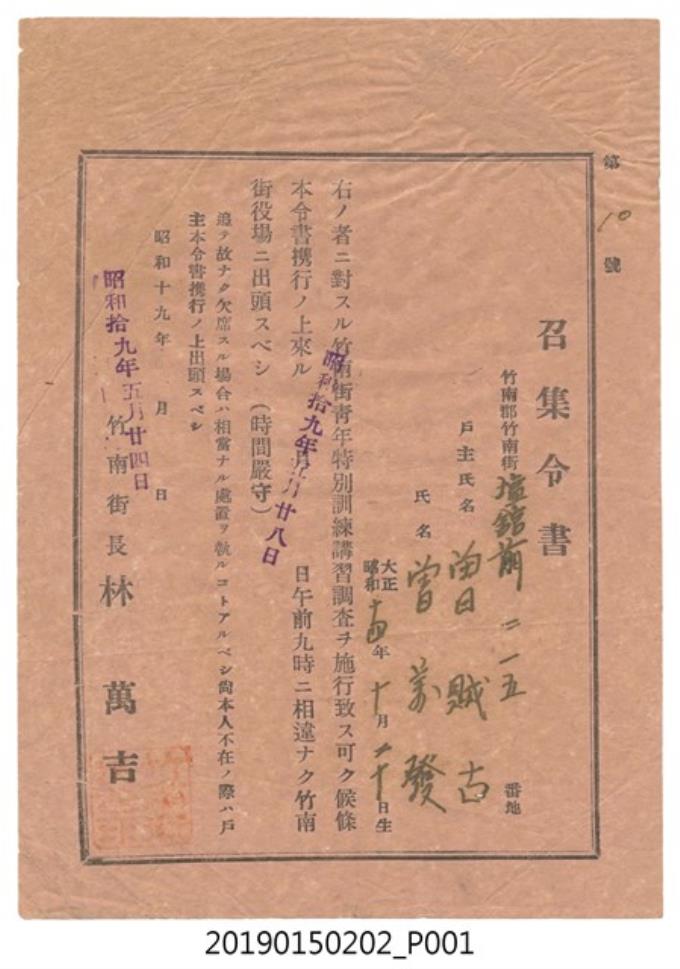 第 10 號
召集令書
竹南郡竹南街塩館前二一五番地
戶主氏名 曾賊古
氏名 曾萬發
大正昭和 十四年十月二十日生
右ノ者ニ對スル竹南街靑年特別訓練講習調査ヲ施行致ス可ク候條
本令書携行ノ上來ル昭和拾九年五月廿八日日午前九時ニ相違ナク竹南
街役場ニ出頭スベシ(時間嚴守)
追テ故ナク欠席スル場合ハ相當ナル處置ヲ執ルコトアルベシ尙本人不在ノ際ハ戶
主本令書携行ノ上出頭スベシ
昭和十九年 月 日
昭和拾九年五月廿四日
竹南街長 林萬吉
20190150202_P001